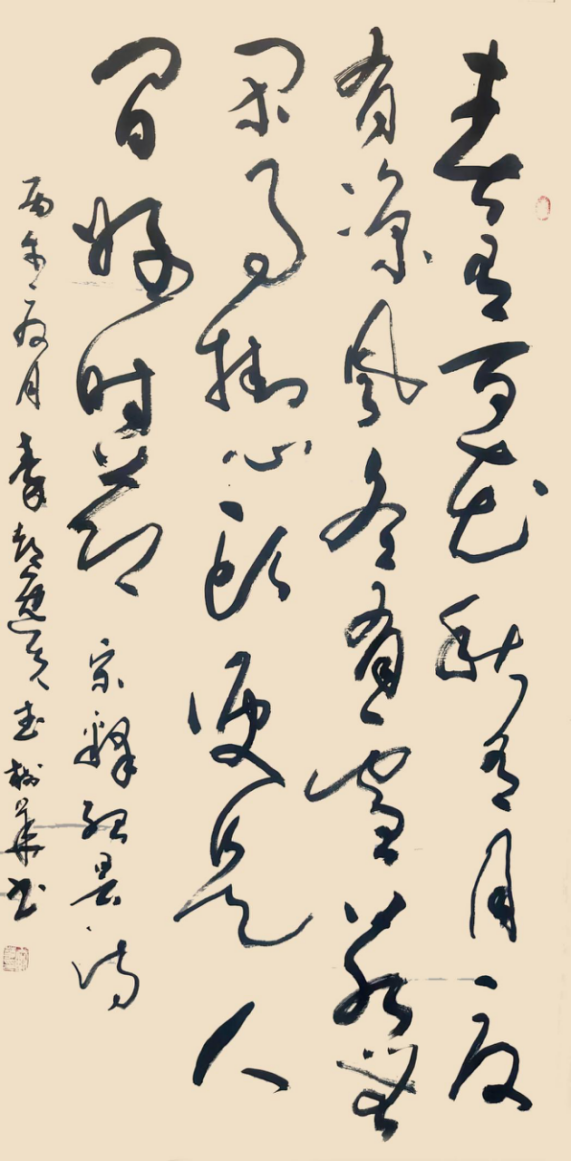 春有百花秋有月夏
有凉风冬有雪若無
闲事挂心头便是人
间好时节 宋释绍昙诗
丙午夏月 树华书